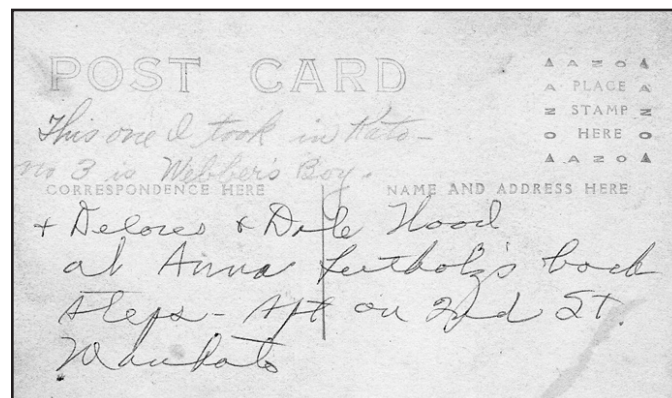 POST CARD
AZO
PLACE
STAMP
HERE
AZO
This one I took in Kato -
no 3 is Webber's Boy.
CORRESPONDENCE HERE
NAME AND ADDRESS HERE
+ Delores & Dale Hood
at Anna back
steps - Apt on 2nd St.
Mankato